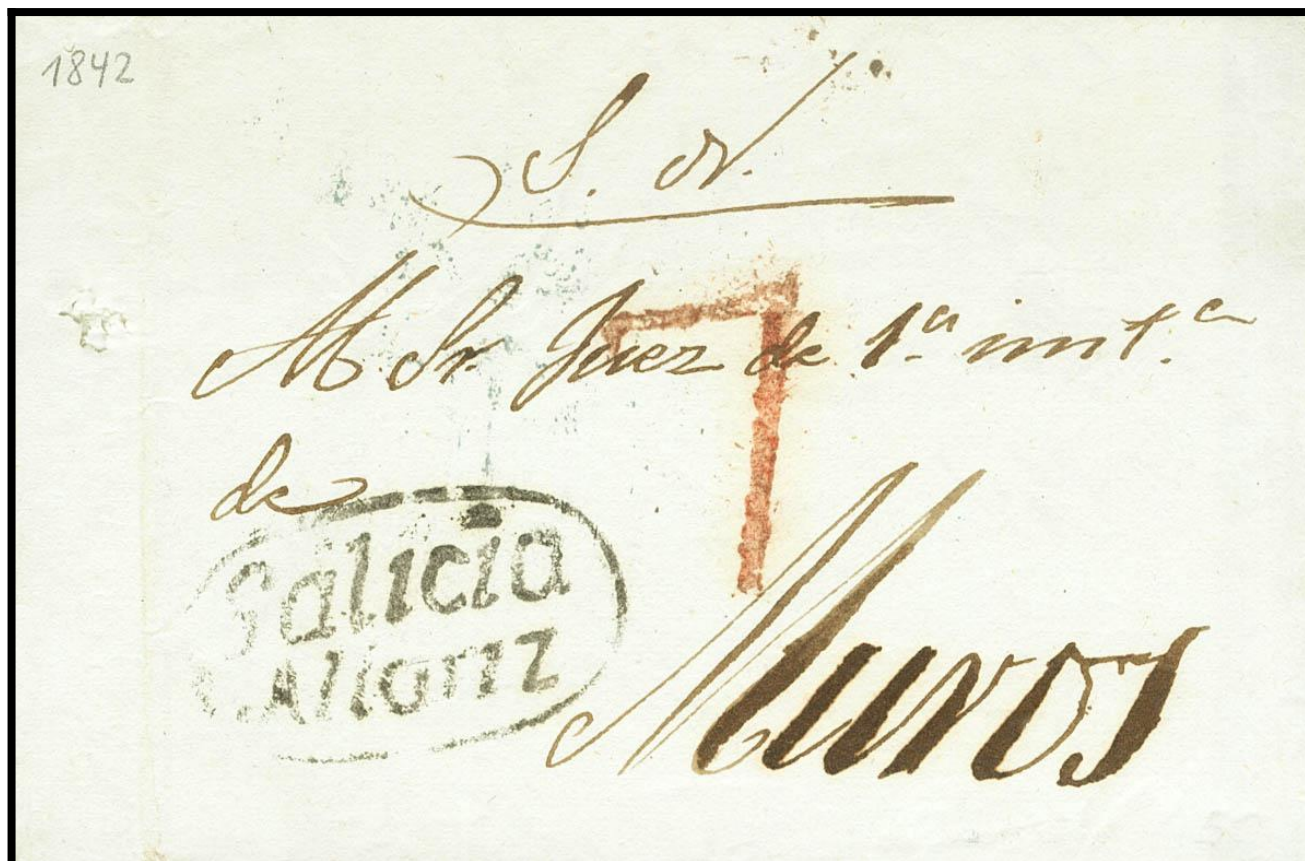 1842
S. N.
Al Sr. Juez de 1ª inst.ª
de
7
Galicia
Allariz
Muros